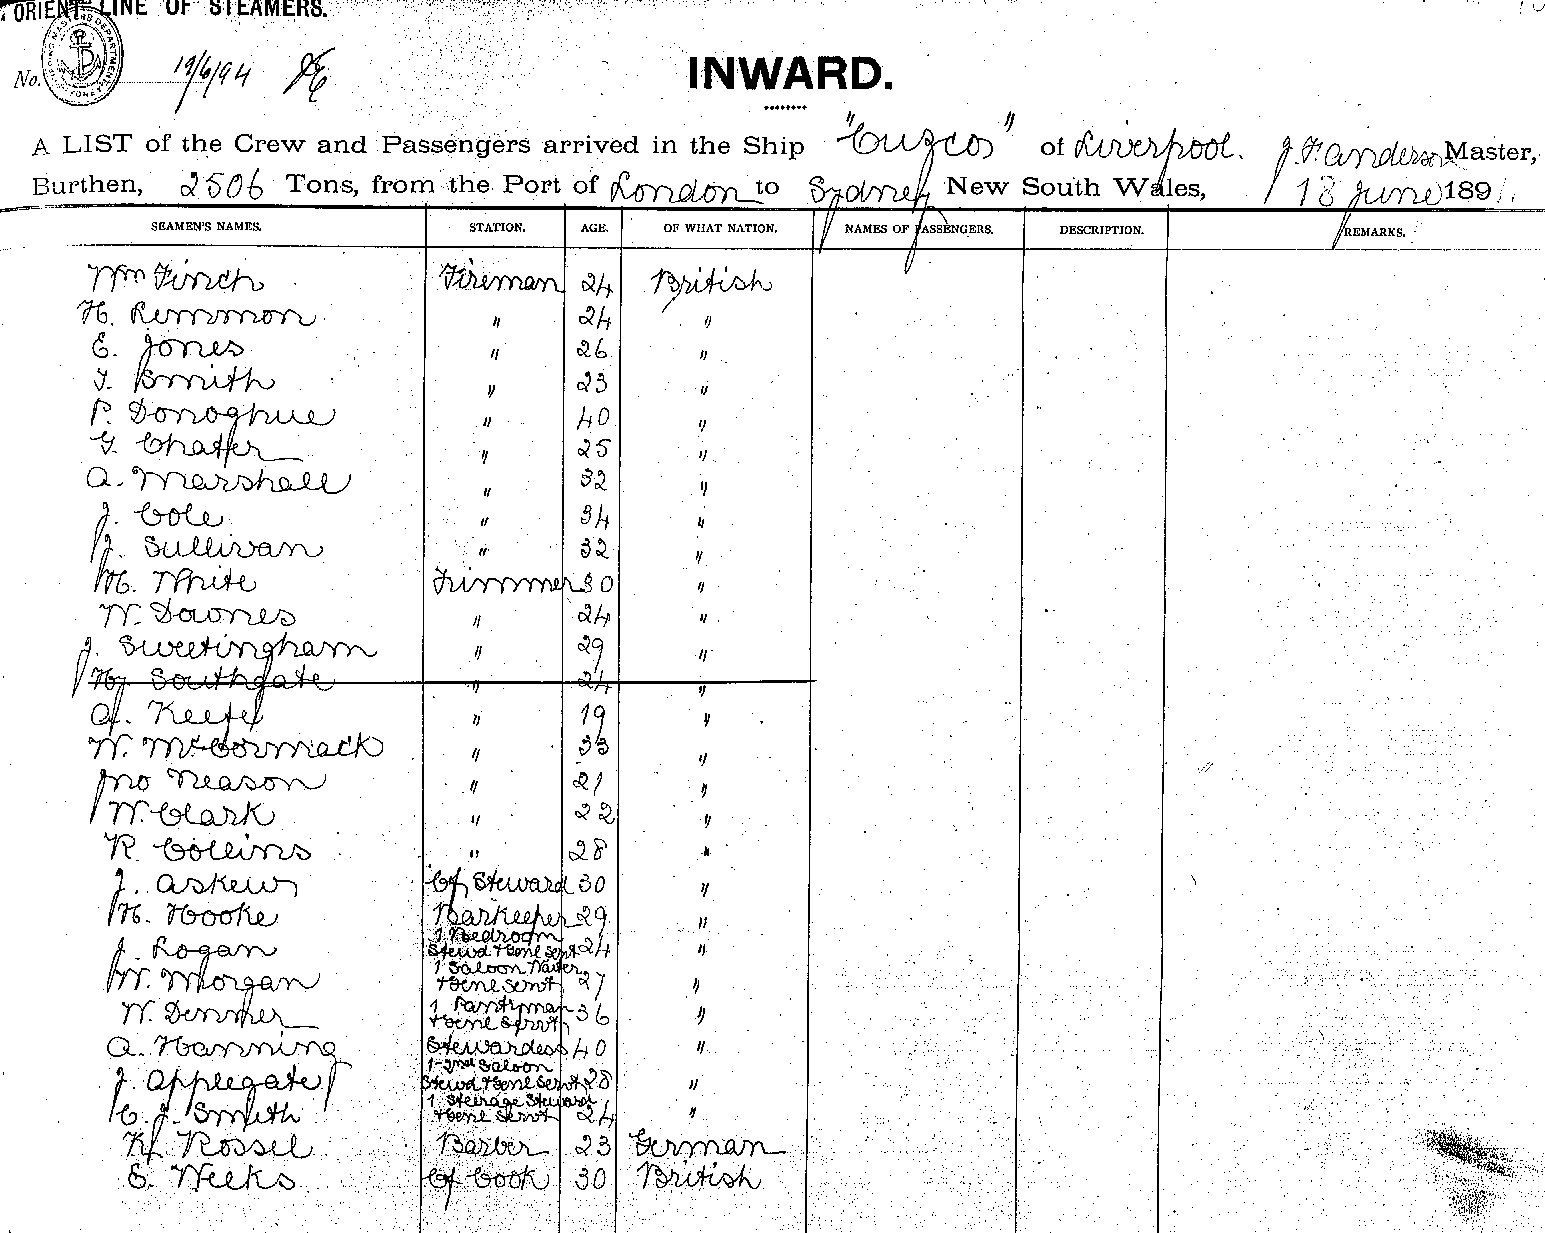 ORIENT LINE OF STEAMERS.
No. 19/6/94
INWARD.
A LIST of the Crew and Passengers arrived in the Ship "Cuzco" of Liverpool. J. F. Anderson Master,
Burthen, 2506 Tons, from the Port of London to Sydney New South Wales, 18 June 189
SEAMEN'S NAMES. STATION. AGE. OF WHAT NATION. NAMES OF PASSENGERS. DESCRIPTION. REMARKS.
Wm Finch Fireman 24 British
H. Lemmon " 24 "
E. Jones " 26 "
T. Smith " 23 "
P. Donoghue " 40 "
G. Chaffer " 25 "
A. Marshall " 32 "
J. Cole " 34 "
J. Sullivan " 32 "
H. White Trimmer 30 "
W. Downes " 24 "
J. Sweetingham " 29 "
Hy Southgate " 24 "
A. Keefe " 19 "
W. McCormack " 33 "
Jno Neason " 21 "
W. Clark " 22 "
R. Collins " 28 "
J. Askew Cf Steward 30 "
H. Hooke Barkeeper 29 "
J. Logan 1 Bedroom Stewd & Genl Servt 24 "
W. Morgan 1 Saloon Waiter & Genl Servt 27 "
W. Demmer 1 Pantryman & Genl Servt 36 "
A. Hanning Stewardess 40 "
J. Applegate 1-2nd Saloon Stewd & Genl Servt 28 "
C. J. Smith 1 Steerage Steward & Genl Servt 24 "
K. Rossel Barber 23 German
E. Weeks Cf Cook 30 British